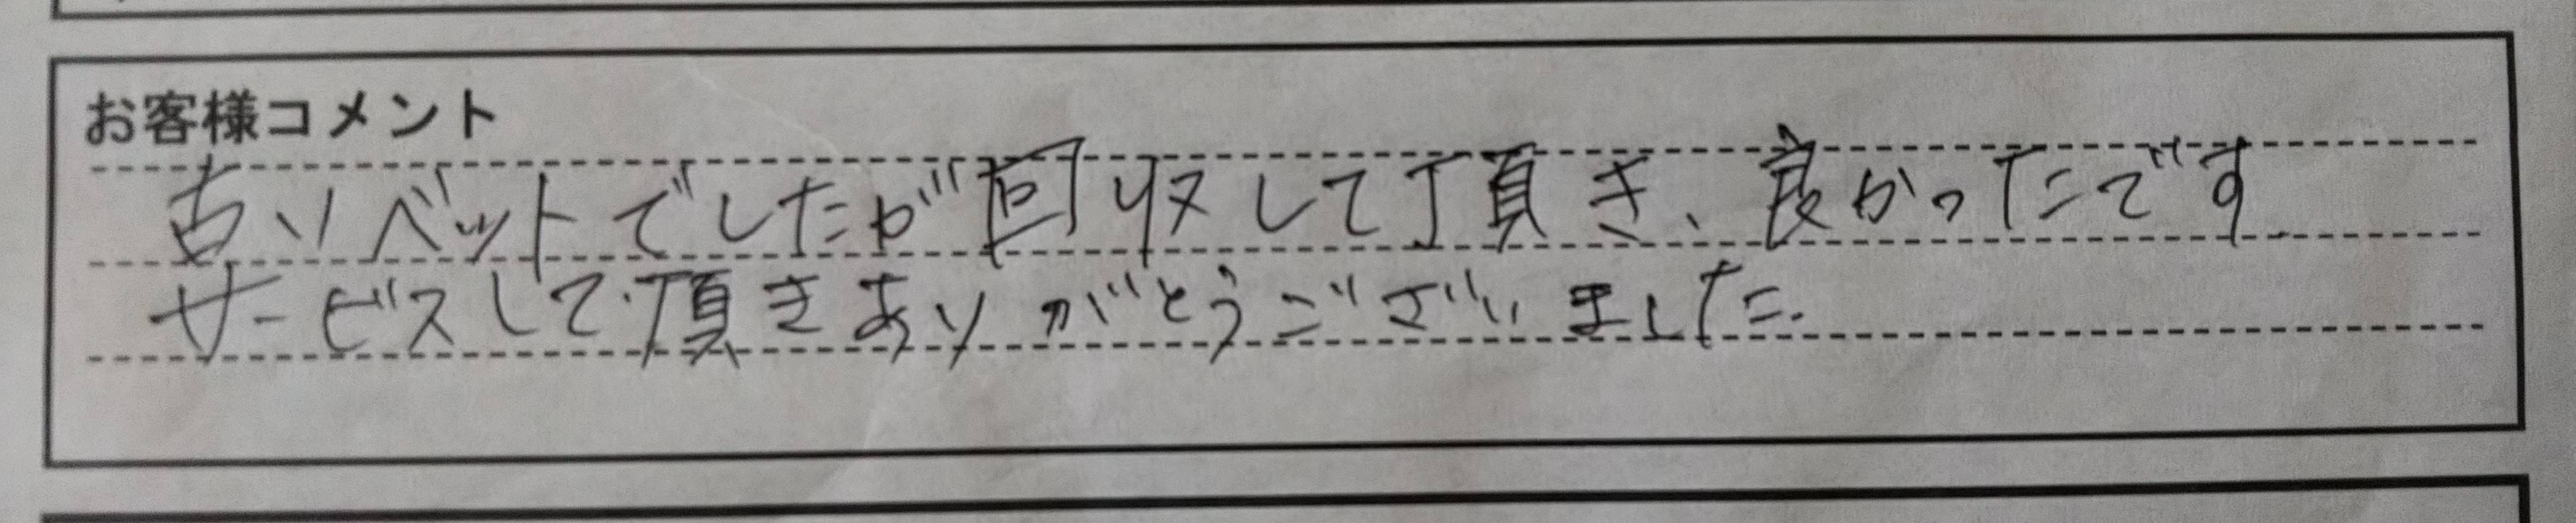 お客様コメント
古いベットでしたが回収して頂き、良かったです
サービスして頂きありがとうございました.